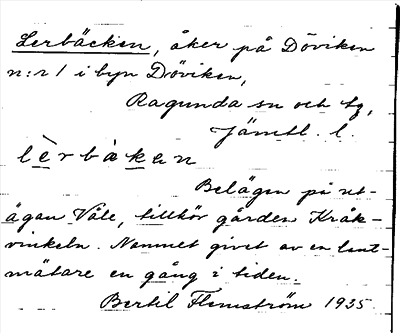 Lerbäcken, åker på Döviken
n:r 1 i byn Döviken,
Ragunda sn och tg,
Jämtl. l.
lèrbàkan
Belägen på ut-
ägan Våle, tillhör gården Kråk-
vinkeln. Namnet givet av en lant-
mätare en gång i tiden.
Bertil Flemström 1935